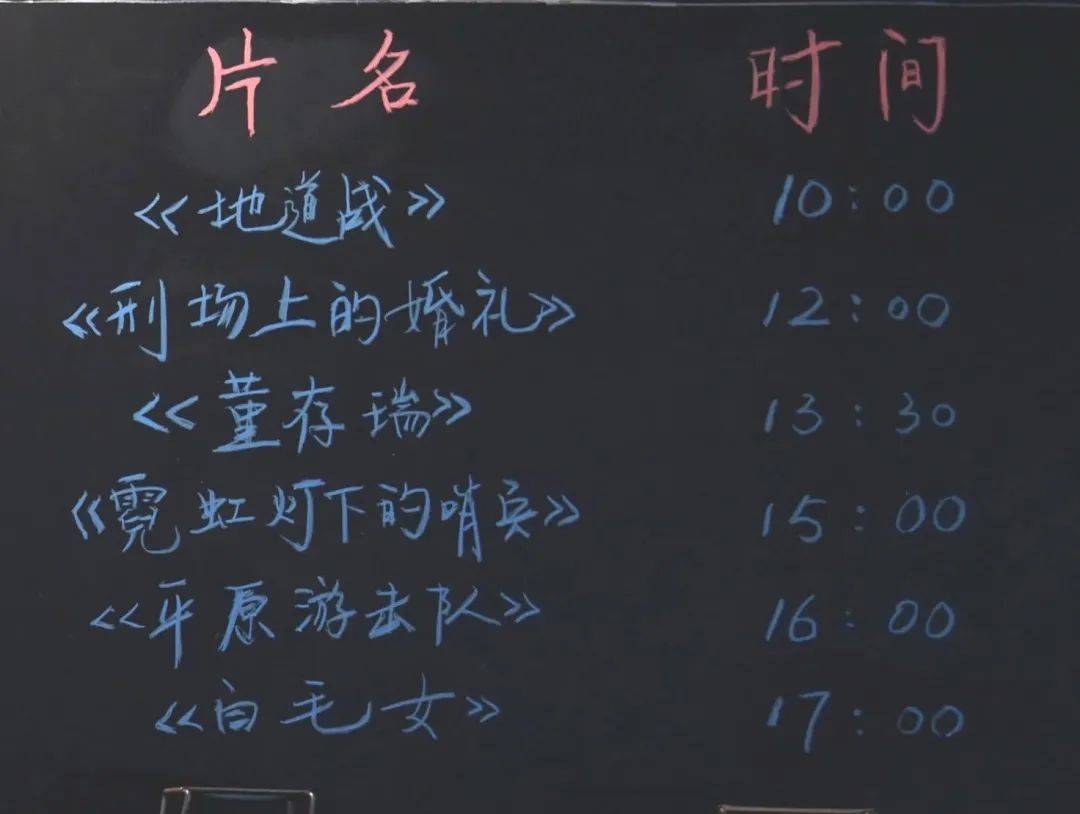 片名 时间
《地道战》 10:00
《刑场上的婚礼》 12:00
《董存瑞》 13:30
《霓虹灯下的哨兵》 15:00
《平原游击队》 16:00
《白毛女》 17:00